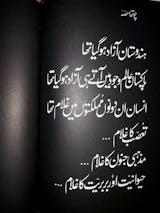 ہندوستان آزاد ہو گیا تھا
پاکستان عالمِ وجود میں آتے ہی آزاد ہو گیا تھا
انسان ان دونوں مملکتوں میں غلام تھا
تعصب کا غلام ...
مذہبی جنون کا غلام ...
حیوانیت اور بربریت کا غلام ...